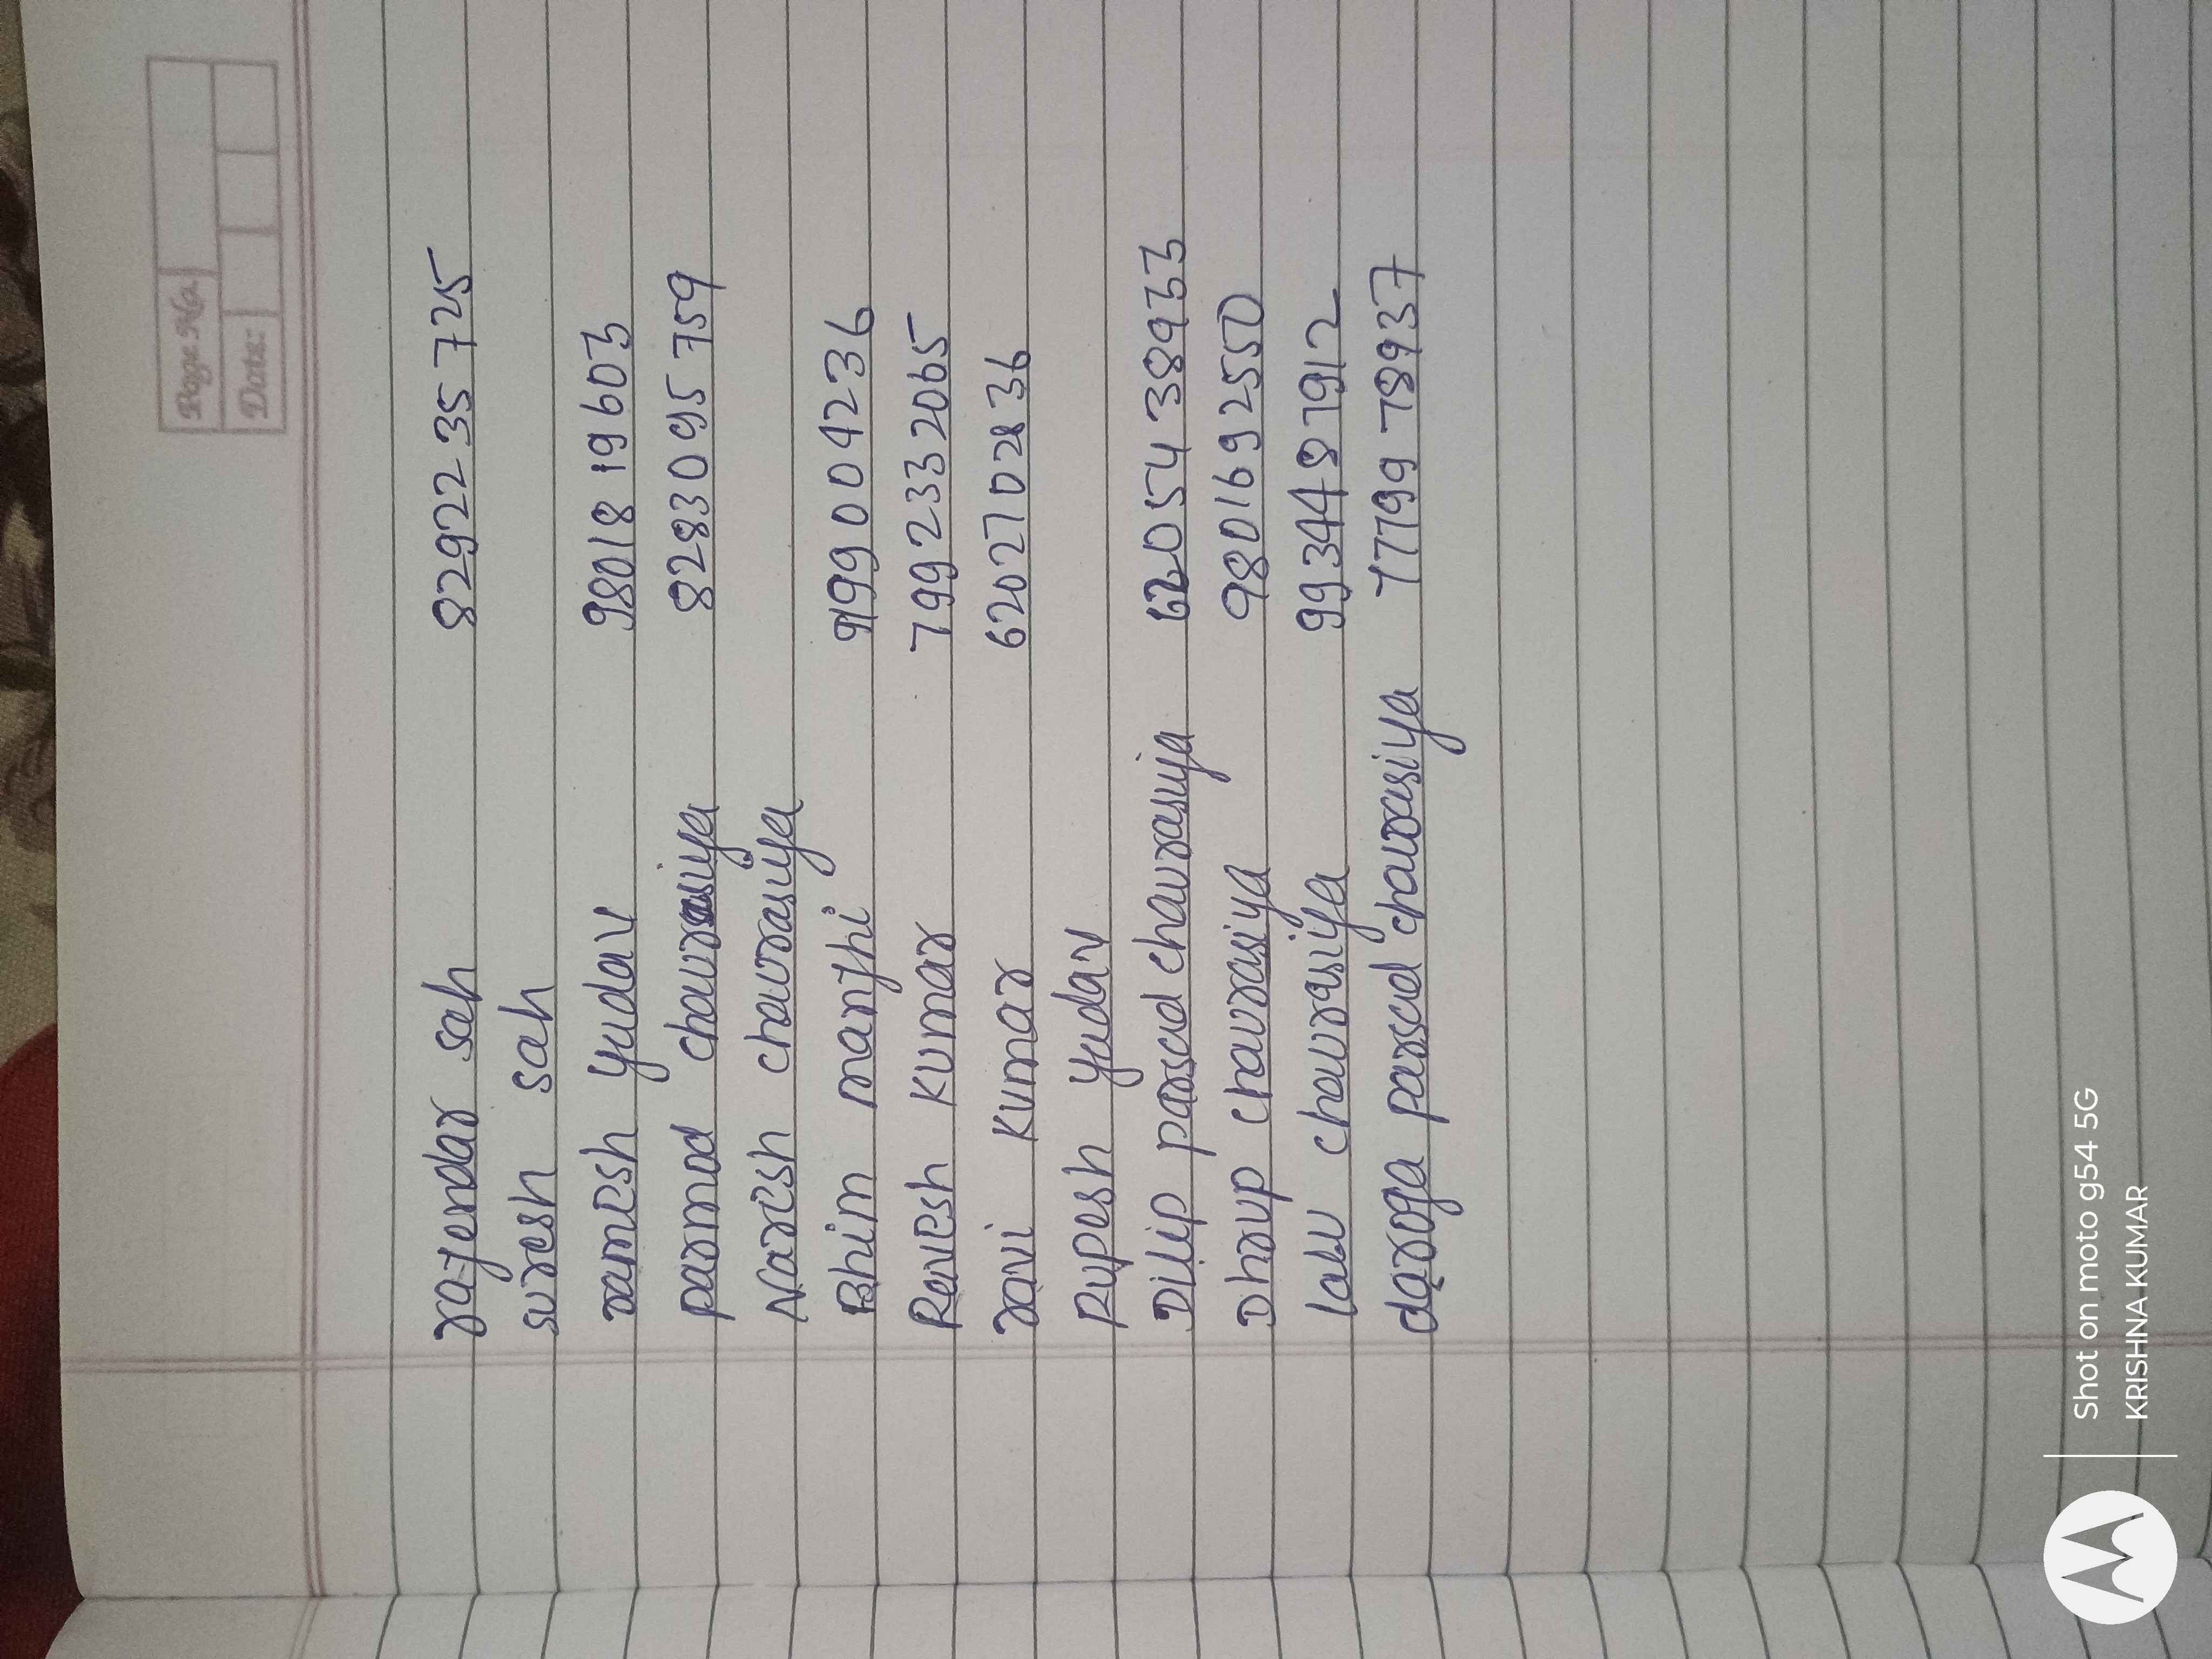 Page No.
Date:
rajendar sah 8292235725
suresh sah
ramesh yadav 9801819603
parmod chaurasiya 8283095759
Naresh chaurasiya
Bhim manjhi 9199004236
Ravesh Kumar 7992332065
ravi Kumar 6202710236
Rupesh yadav
Dilip parsad chaurasiya 6205438933
Dhrup chaurasiya 9801692550
lalu chaurasiya 9934487912
daroga parsad chaurasiya 7779978937
Shot on moto g54 5G
KRISHNA KUMAR